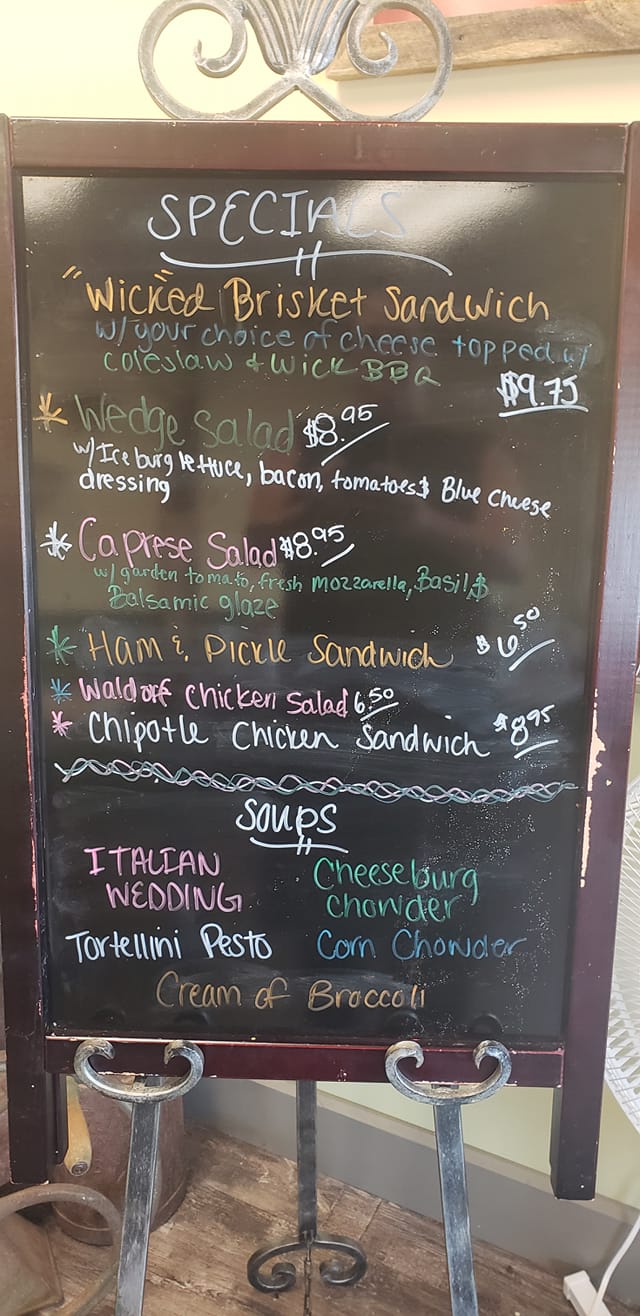 SPECIALS
"Wicked" Brisket Sandwich
w/your choice of cheese topped w/
coleslaw & Wick BBQ
$9.75
Wedge Salad $8.95
w/Iceburg lettuce, bacon, tomatoes & Blue cheese
dressing
Caprese Salad $8.95
w/garden tomato, fresh mozzarella, Basil &
Balsamic glaze
Ham & Pickle Sandwich $6.50
Waldorf Chicken Salad 6.50
Chipotle Chicken Sandwich $8.95
SOUPS
ITALIAN
WEDDING
Cheeseburg
chowder
Tortellini Pesto
Corn Chowder
Cream of Broccoli